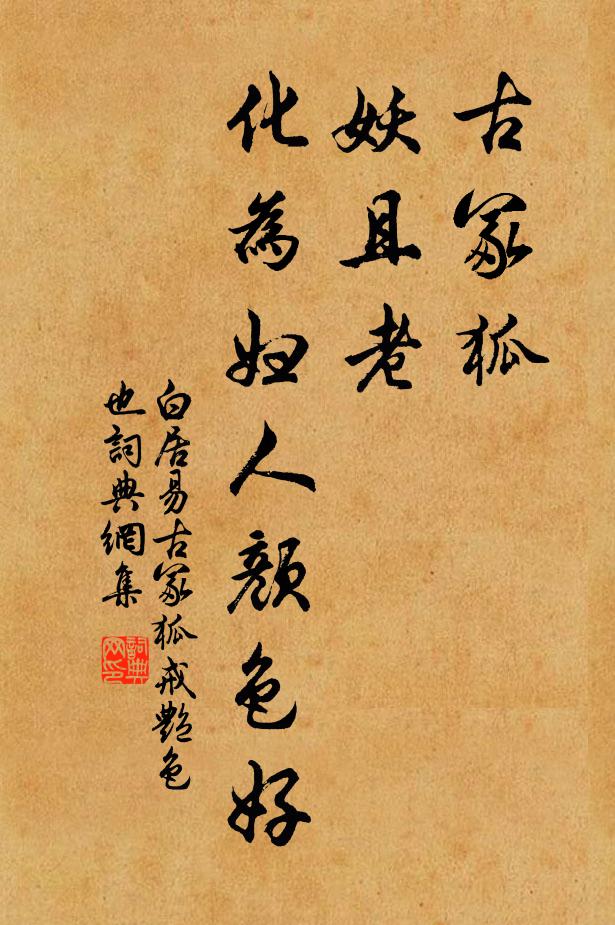 古冢狐
妖且老
化為婦人顔色好
白居易古冢狐戒艷色
也詞典網集
詞典
网印